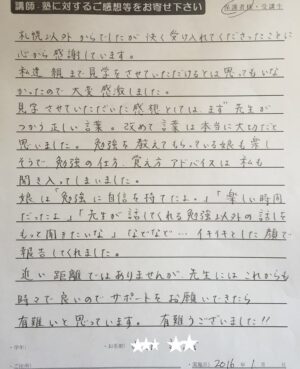 講師・塾に対するご感想等をお寄せ下さい
保護者様・受講生
札幌以外からでしたが快く受け入れてくださったことに
心から感謝しています。
私達親まで見学をさせていただけるとは思ってもいな
かったので大変感激しました。
見学させていただいた感想としては、まず先生が
つかう正しい言葉。改めて言葉は本当に大切だと
思いました。勉強を教えてもらっている娘も楽し
そうで、勉強の仕方、覚え方アドバイスは私も
聞き入ってしまいました。
娘は「勉強に自信を持てたよ。」「楽しい時間
だったよ」「先生が話してくれる勉強以外の話しを
もって聞きたいな」などなど…イキイキとした顔で
報告してくれました。
近い距離ではありませんが、先生にはこれからも
時々で良いのでサポートをお願いできたら
有難いと思っています。有難うございました!!
・学年:
・お名前:
2016年1月